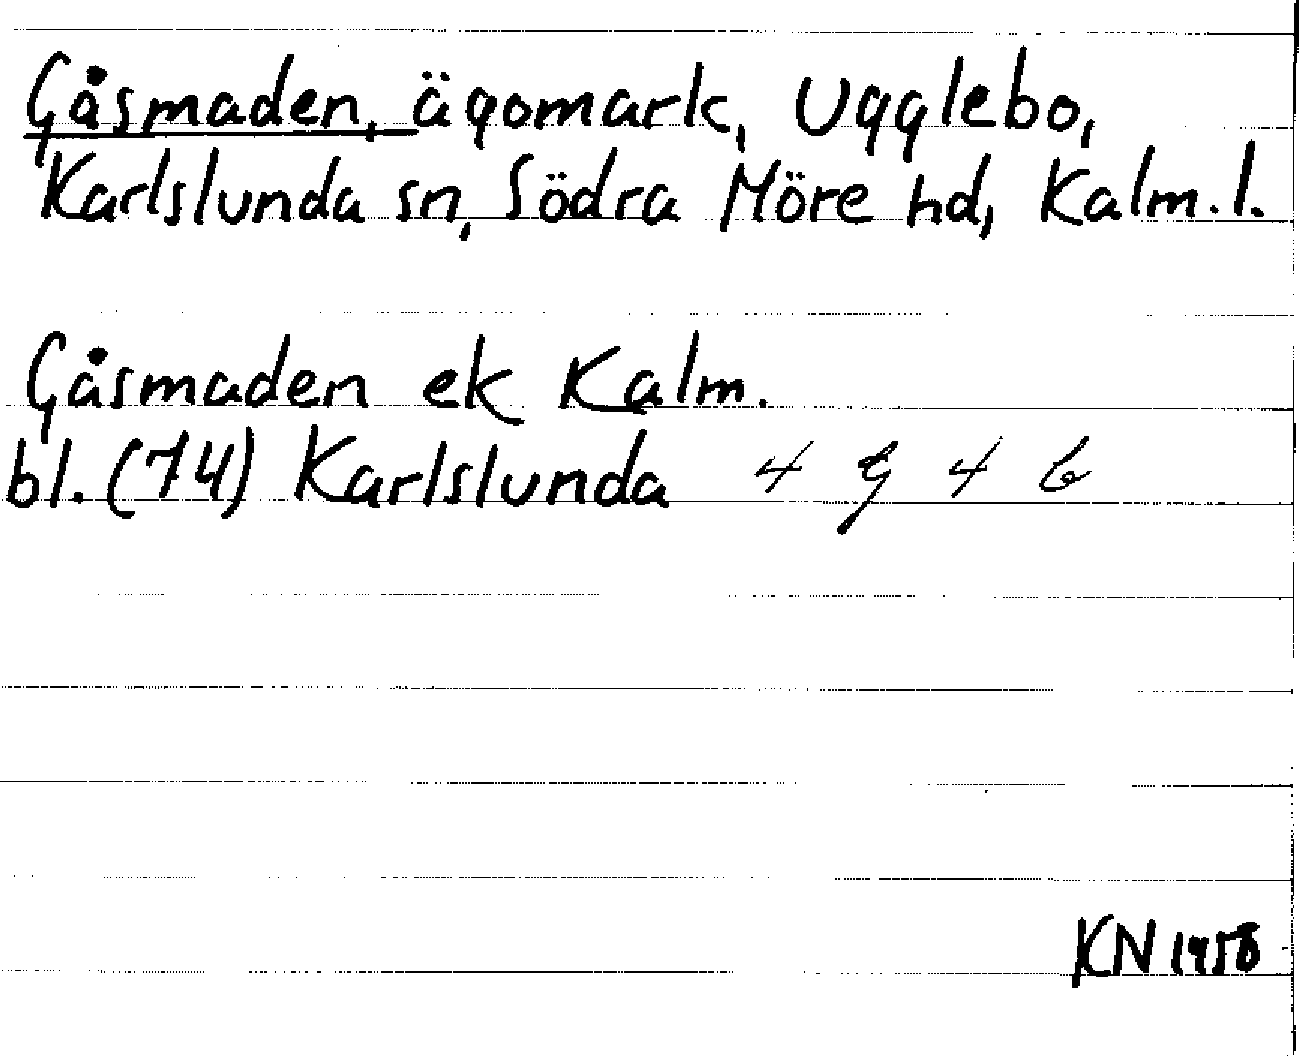 Gåsmaden, ägomark, Ugglebo,
Karlslunda sn, Södra Möre hd, Kalm. l.
Gåsmaden ek Kalm.
bl. (74) Karlslunda 4 g 4 b
KN 1958